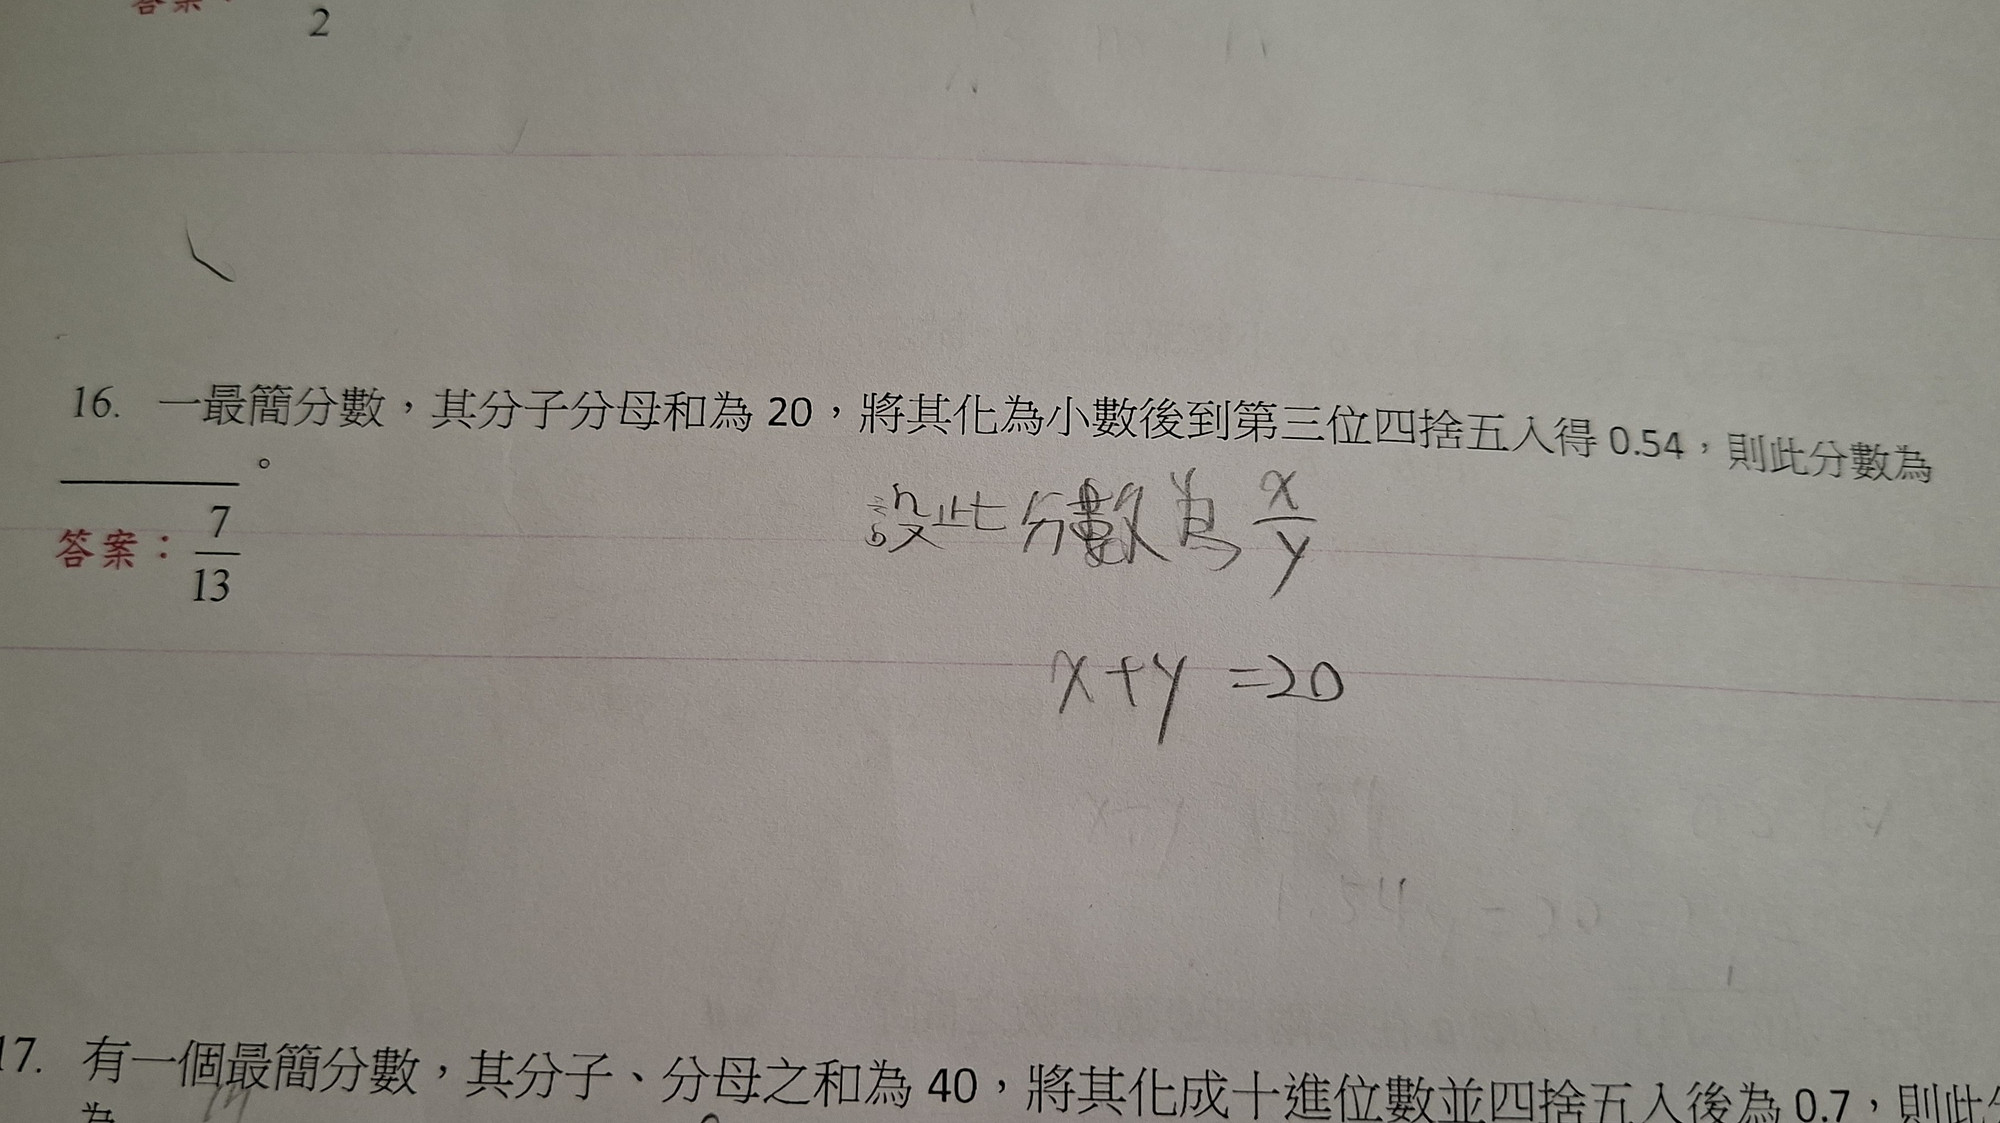 答案：
2
16. 一最簡分數，其分子分母和為 20，將其化為小數後到第三位四捨五入得 0.54，則此分數為
______。
設此分數為 x/y
答案： 7/13
x+y =20
1.54
17. 有一個最簡分數，其分子、分母之和為 40，將其化成十進位數並四捨五入後為 0.7，則此
為